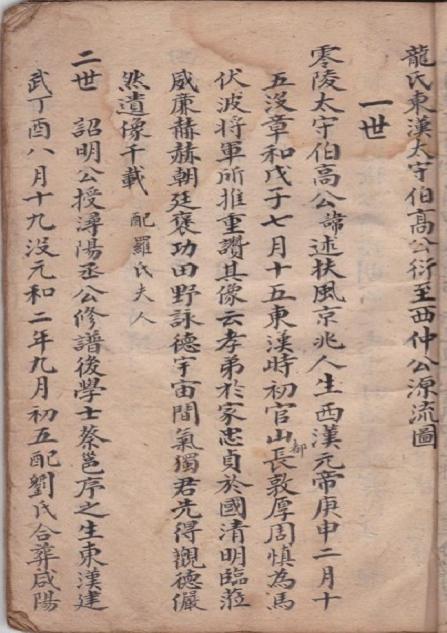 龍氏東漢太守伯高公衍至西仲公源流圖
一世
零陵太守伯高公諱述扶風京兆人生西漢元帝庚申二月十
五沒章和戊子七月十五東漢時初官山都長敦厚周慎為馬
伏波將軍所推重讚其像云孝弟於家忠貞於國清明臨蒞
威廉赫赫朝廷褒功田野詠德宇宙間氣獨君先得觀德儼
然遺像千載 配羅氏夫人
二世 詔明公授潯陽丞公修譜後學士蔡邕序之生東漢建
武丁酉八月十九沒元和二年九月初五配劉氏合葬咸陽